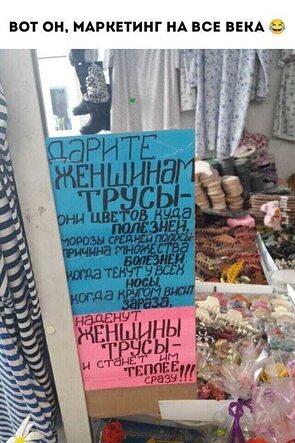 ВОТ ОН, МАРКЕТИНГ НА ВСЕ ВЕКА 😂
ДАРИТЕ
ЖЕНЩИНАМ
ТРУСЫ-
ОНИ ЦВЕТОВ КУДА
ПОЛЕЗНЕЙ,
МОРОЗЫ СРЕДНЕЙ ПОЛОСЫ-
ПРИЧИНА МНОЖЕСТВА
БОЛЕЗНЕЙ.
КОГДА ТЕКУТ У ВСЕХ
НОСЫ,
КОГДА КРУГОМ ВИСИТ
ЗАРАЗА,
НАДЕНУТ
ЖЕНЩИНЫ
ТРУСЫ-
И СТАНЕТ ИМ
ТЕПЛЕЕ
СРАЗУ!!!